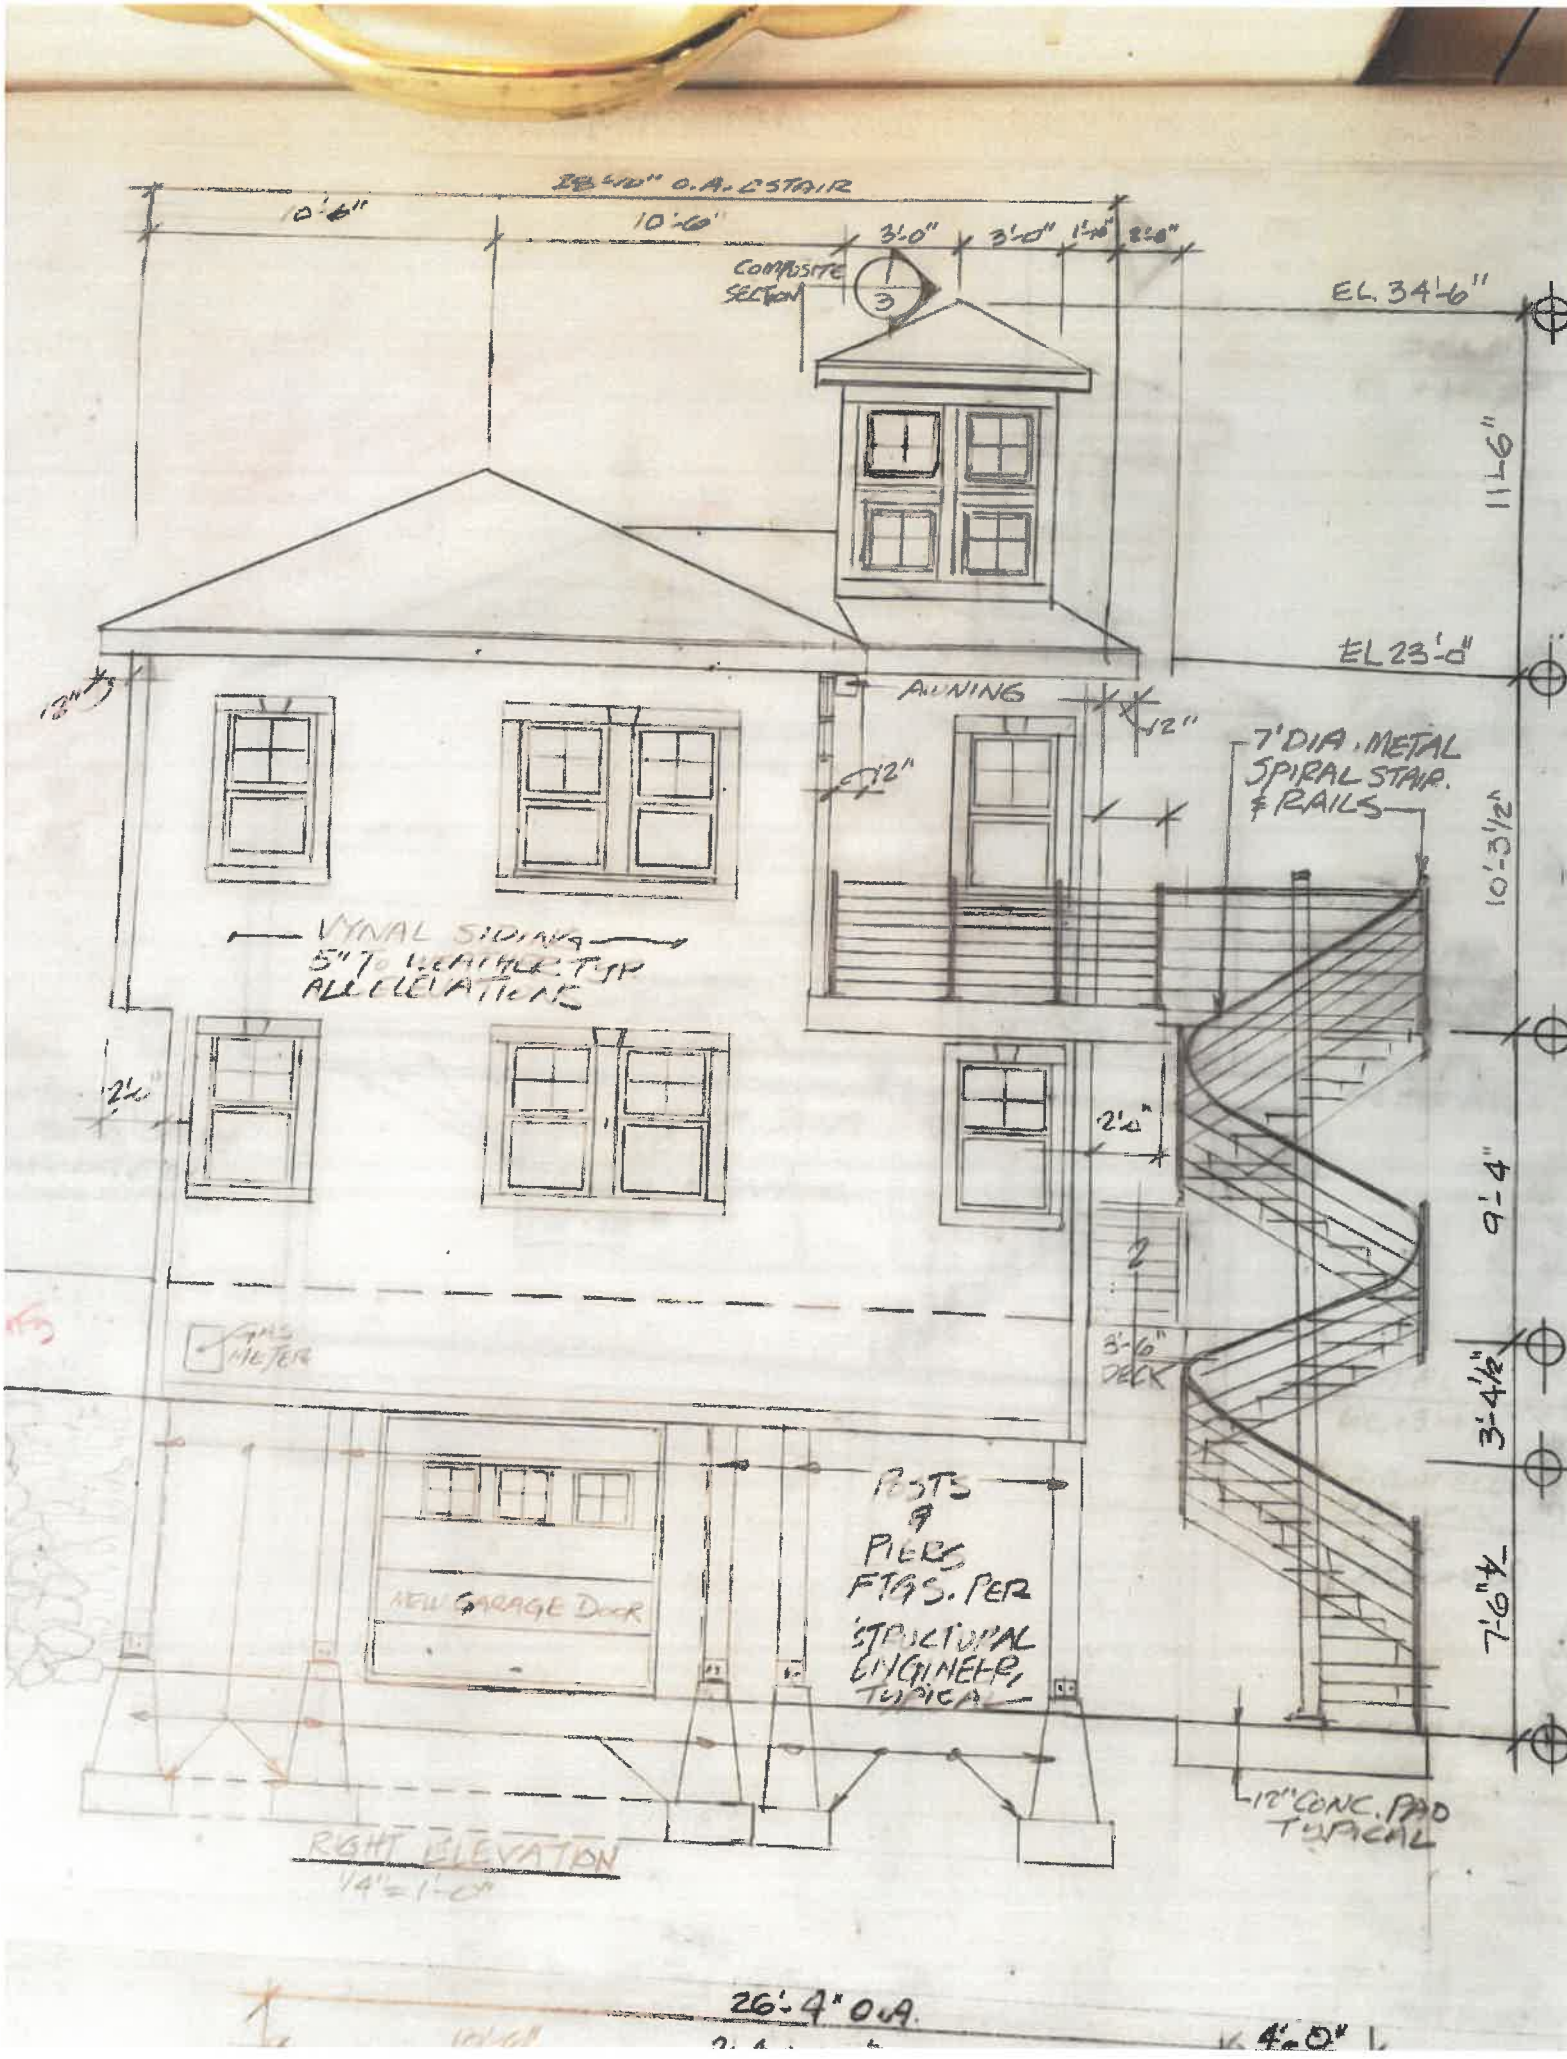 28'-10" O.A. C STAIR
10'-6"
10'-6"
3'-0"
3'-0"
1'-10"
2'-0"
COMPOSITE
SECTION
3
EL. 34'-6"
11'-6"
EL 23'-0"
18"
AWNING
12"
12"
7' DIA. METAL
SPIRAL STAIR.
& RAILS
10'-3½"
VYNAL SIDING
5" TO WEATHER TYP
ALL ELEVATIONS
2'-0"
9'-4"
2
GAS
METER
3'-6"
DECK
3'-4½"
POSTS
&
PIERS
FTGS. PER
STRUCTURAL
ENGINEER,
TYPICAL
NEW GARAGE DOOR
7'-6"±
12" CONC. PAD
TYPICAL
RIGHT ELEVATION
1/4" = 1'-0"
26'-4" O.A.
10'-6"
4'-0"